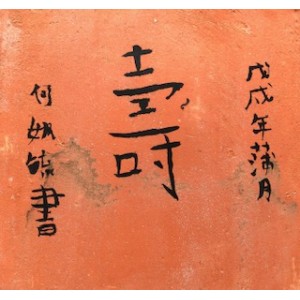 戊戌年蒲月
壽
何書